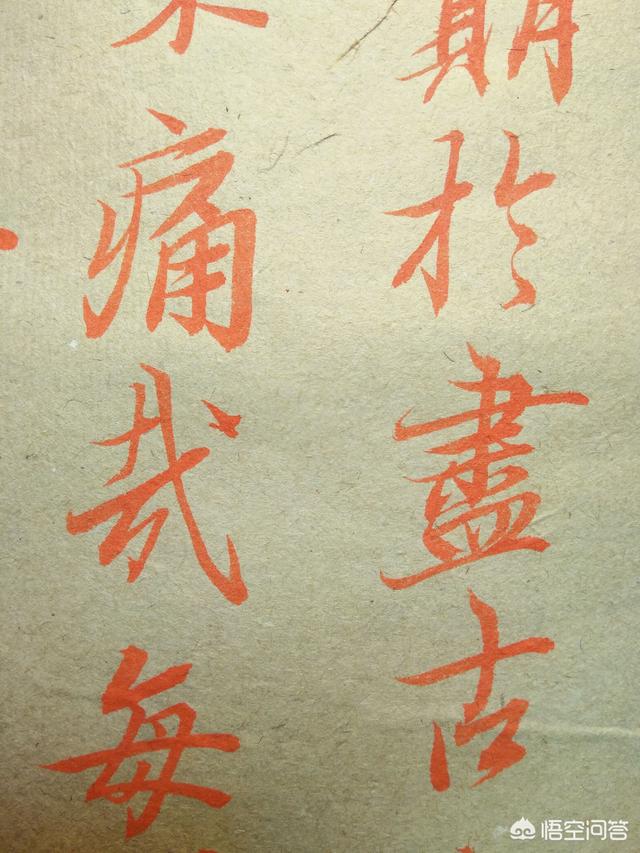 期於盡古
痛哉每
悟空问答